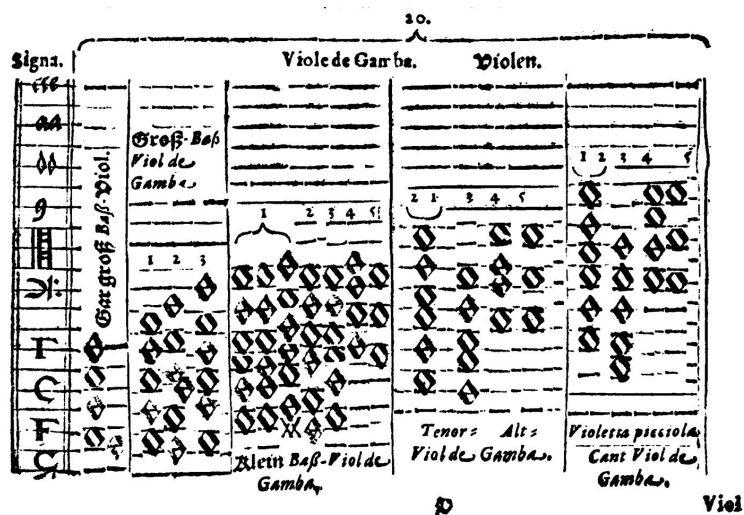 20.
Signa. Viole de Gamba. Violen.
Gar groß Baß-Viol.
Groß-Baß
Viol de
Gamba
1 2 3
1 2 3 4 5
2 1 3 4 5
1 2 3 4 5
Klein Baß-Viol de
Gamba.
Tenor= Alt=
Viol de Gamba.
Violetta picciola
Cant Viol de
Gamba.
Viol